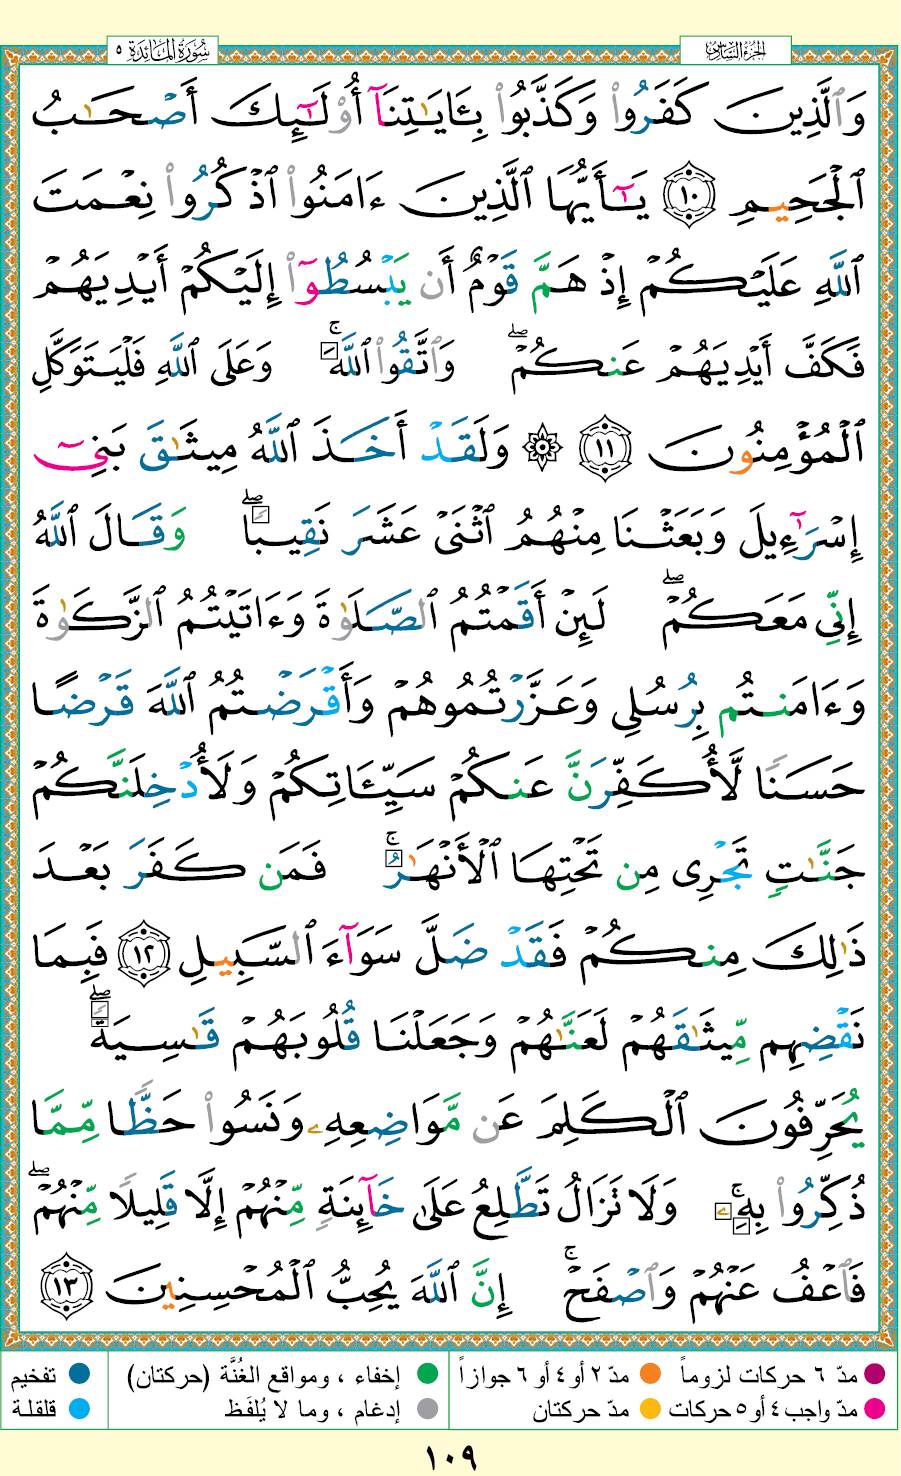 سُورَةُ المَائدَة ٥
الجزء السادس
وَٱلَّذِينَ كَفَرُوا۟ وَكَذَّبُوا۟ بِـَٔايَـٰتِنَآ أُو۟لَـٰٓئِكَ أَصْحَـٰبُ
ٱلْجَحِيمِ ١٠ يَـٰٓأَيُّهَا ٱلَّذِينَ ءَامَنُوا۟ ٱذْكُرُوا۟ نِعْمَتَ
ٱللَّهِ عَلَيْكُمْ إِذْ هَمَّ قَوْمٌ أَن يَبْسُطُوٓا۟ إِلَيْكُمْ أَيْدِيَهُمْ
فَكَفَّ أَيْدِيَهُمْ عَنكُمْ ۖ وَٱتَّقُوا۟ ٱللَّهَ ۚ وَعَلَى ٱللَّهِ فَلْيَتَوَكَّلِ
ٱلْمُؤْمِنُونَ ١١ ۞ وَلَقَدْ أَخَذَ ٱللَّهُ مِيثَـٰقَ بَنِىٓ
إِسْرَٰٓءِيلَ وَبَعَثْنَا مِنْهُمُ ٱثْنَىْ عَشَرَ نَقِيبًا ۖ وَقَالَ ٱللَّهُ
إِنِّى مَعَكُمْ ۖ لَئِنْ أَقَمْتُمُ ٱلصَّلَوٰةَ وَءَاتَيْتُمُ ٱلزَّكَوٰةَ
وَءَامَنتُم بِرُسُلِى وَعَزَّرْتُمُوهُمْ وَأَقْرَضْتُمُ ٱللَّهَ قَرْضًا
حَسَنًا لَّأُكَفِّرَنَّ عَنكُمْ سَيِّـَٔاتِكُمْ وَلَأُدْخِلَنَّكُمْ
جَنَّـٰتٍ تَجْرِى مِن تَحْتِهَا ٱلْأَنْهَـٰرُ ۚ فَمَن كَفَرَ بَعْدَ
ذَٰلِكَ مِنكُمْ فَقَدْ ضَلَّ سَوَآءَ ٱلسَّبِيلِ ١٢ فَبِمَا
نَقْضِهِم مِّيثَـٰقَهُمْ لَعَنَّـٰهُمْ وَجَعَلْنَا قُلُوبَهُمْ قَـٰسِيَةً ۖ
يُحَرِّفُونَ ٱلْكَلِمَ عَن مَّوَاضِعِهِۦ وَنَسُوا۟ حَظًّا مِّمَّا
ذُكِّرُوا۟ بِهِۦ ۚ وَلَا تَزَالُ تَطَّلِعُ عَلَىٰ خَآئِنَةٍ مِّنْهُمْ إِلَّا قَلِيلًا مِّنْهُمْ ۖ
فَٱعْفُ عَنْهُمْ وَٱصْفَحْ ۚ إِنَّ ٱللَّهَ يُحِبُّ ٱلْمُحْسِنِينَ ١٣
مدّ ٦ حركات لزوماً مدّ ٢ أو ٤ أو ٦ جوازاً إخفاء ، ومواقع الغُنَّة (حركتان) تفخيم
مدّ واجب ٤ أو ٥ حركات مدّ حركتان إدغام ، وما لا يُلفَظ قلقلة
١٠٩